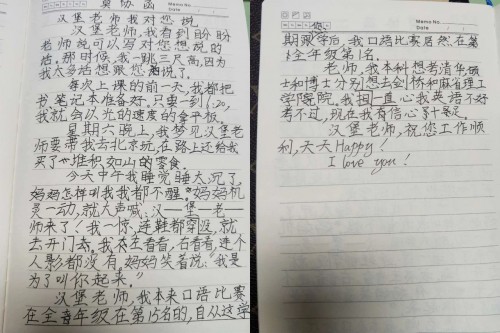 Memo No.
Date
莫协函
汉堡老师我对您说
汉堡老师,我看到盼盼
老师说可以写对您想说的
话。那时候,我一跳三尺高,因为
我太多话想跟您说了。
每次上课的前一天,我都把
书笔记本准备好。只要一到6:20,
我就会以光的速度的拿平板。
星期六晚上,我梦见汉堡老
师要带我去北京玩,在路上还给我
买了堆积如山的零食。
今天中午我睡觉睡太沉了,
妈妈怎样叫我我都不醒。妈妈机
灵一动,就大声喊:汉—堡—老—
师来了!我一惊,连鞋都穿没,就
去开门去。我左看看,右看看,连个
人影都没有。妈妈笑着说:“我是
为了叫你起来。”
汉堡老师,我本来口语比赛
在全年级在第15名的,自从这学
Memo No.
Date
期跟您学后,我口语比赛居然在第
全年级第1名。
老师,我本科想考清华,硕
士和博士分别想去剑桥和麻省理工
学院,我担一直心我英语不好
考不过,现在我有信心了十足。
汉堡老师,祝您工作顺
利,天天Happy!
I love you!